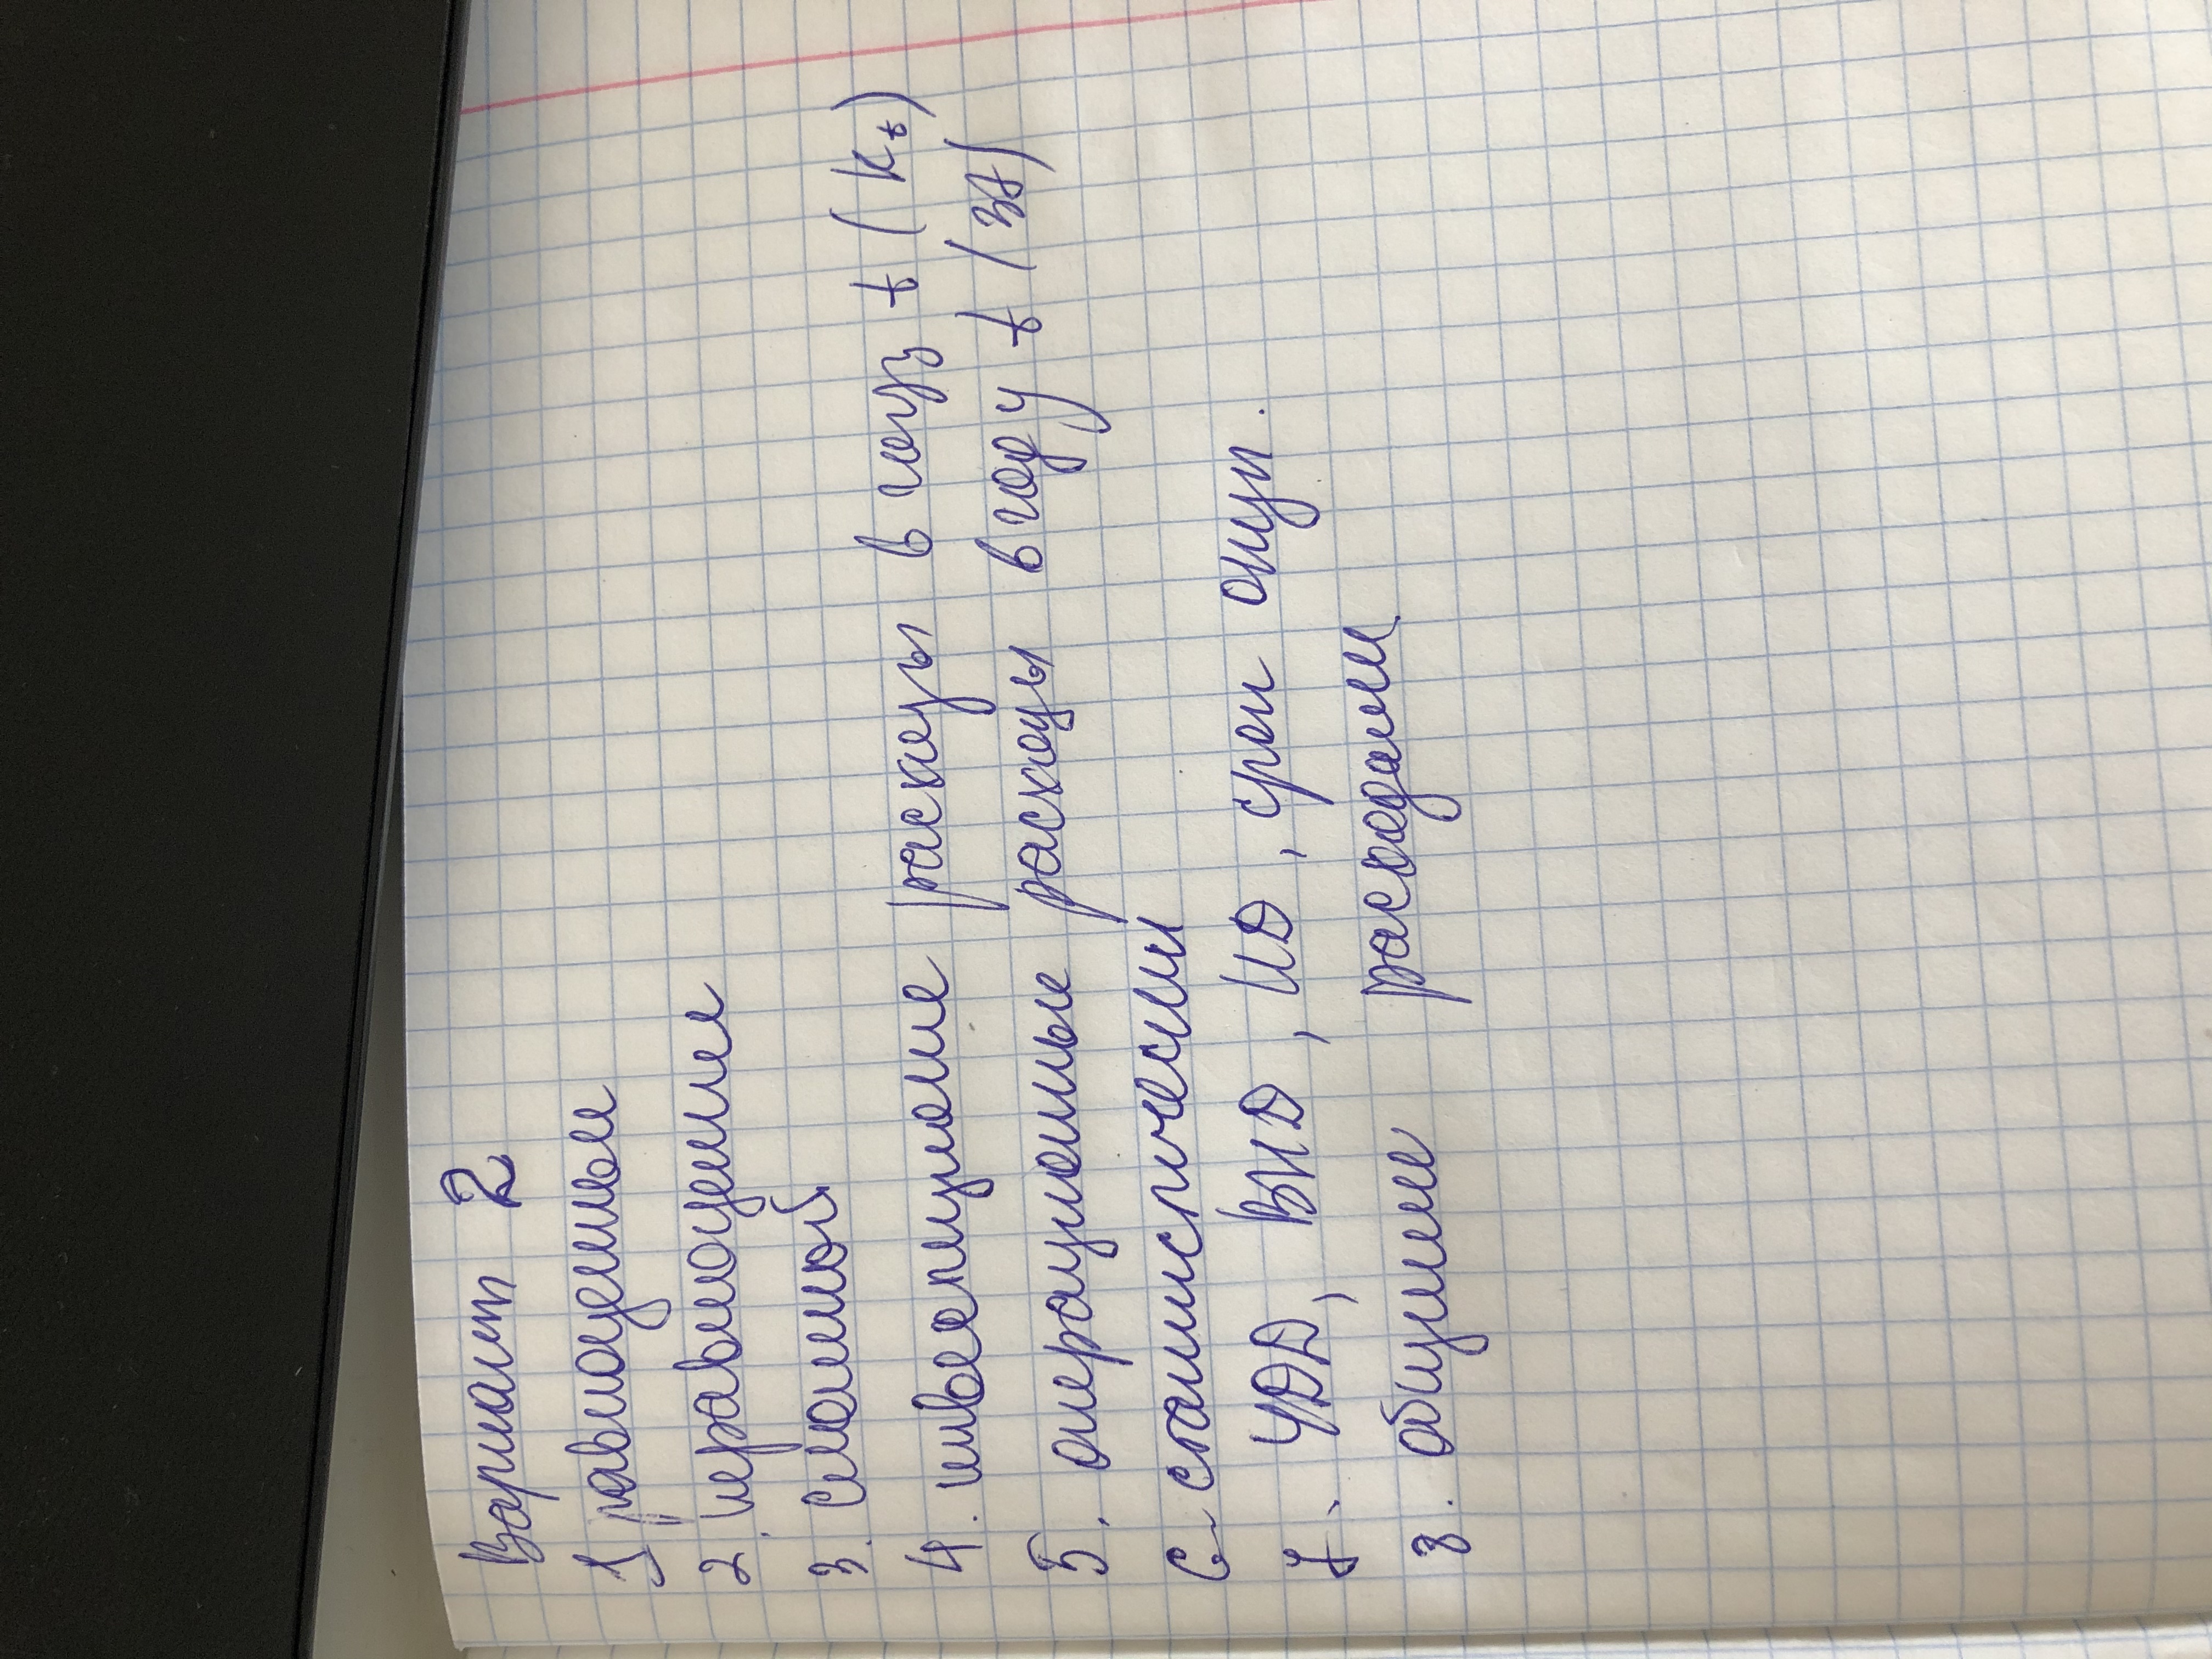 Вариант 2
1 равноценные
2. неравноценные
3. сложной
4. инвестиционные расходы в году t (Kt)
5. операционные расходы в году t (Зt)
6. статистически
7. ЧДД, ВНД, ИД, срок окуп.
8. общими расходами